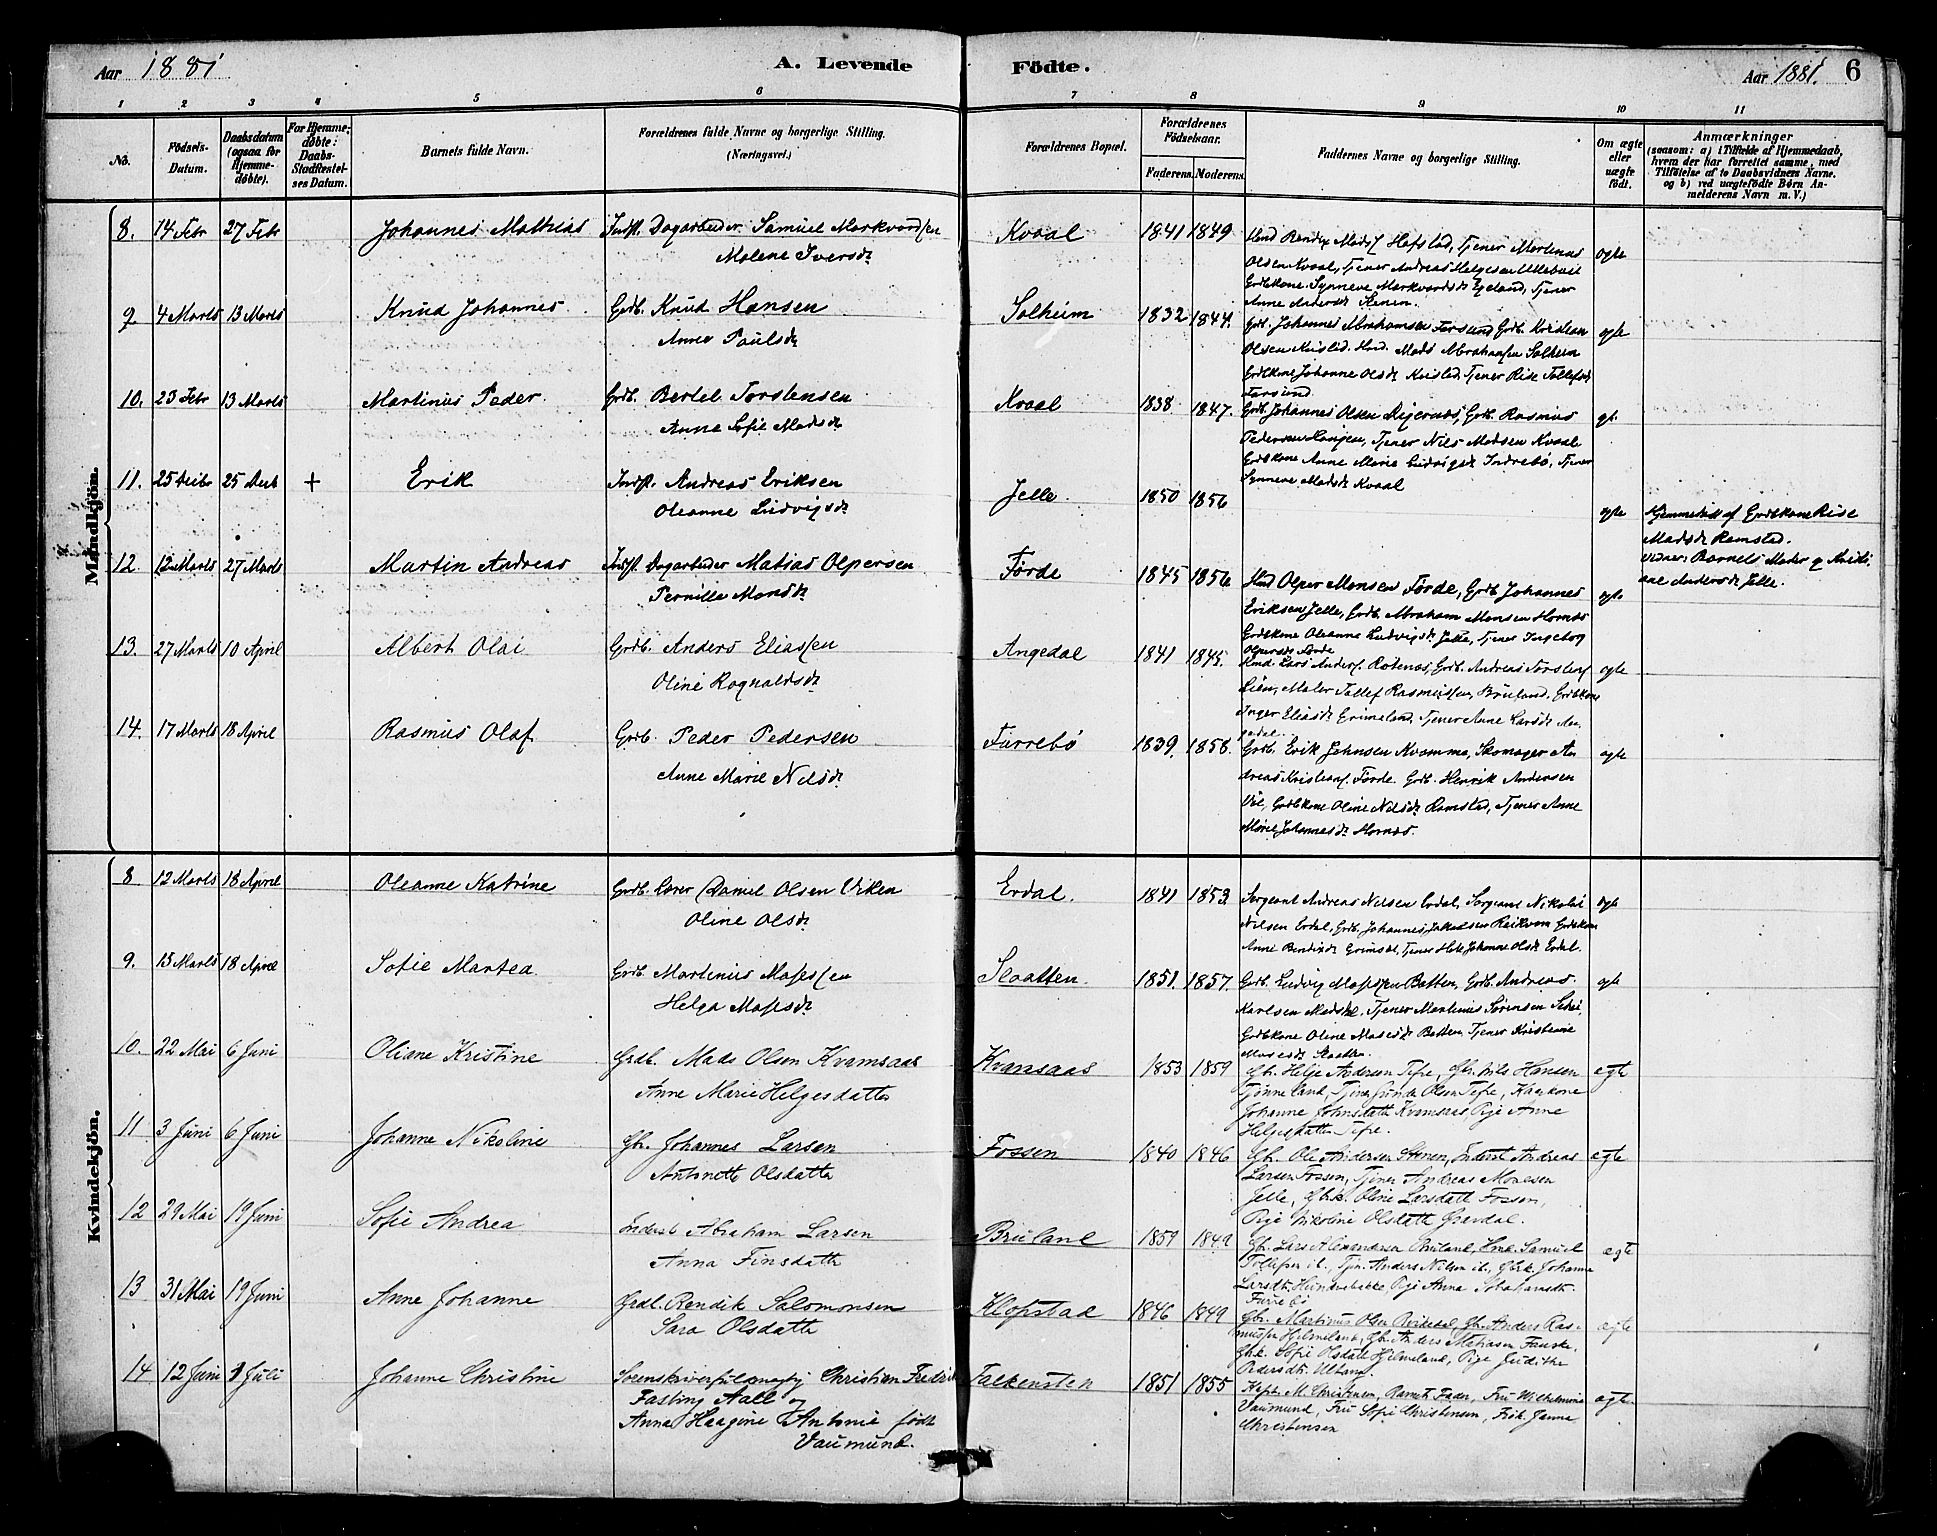 Aar 1881
A. Levende
Födte.
Aar 1881.
6
1 2 3 4 5 6 7 8 9 10 11
No.
Födsels-Datum.
Daabsdatum (ogsaa for Hjemme-döbte).
For Hjemme-döbte: Daabs-Stadfæstel-ses Datum.
Barnets fulde Navn.
Forældrenes fulde Navne og borgerlige Stilling. (Næringsvei.)
Forældrenes Bopæl.
Forældrenes Födselsaar.
Faderens. Moderens.
Faddernes Navne og borgerlige Stilling.
Om ægte eller uægte födt.
Anmærkninger
(saasom: a) i Tilfælde af Hjemmedaab,
hvem der har forrettet samme, med
Tilföielse af to Daabsvidners Navne.
og b) ved uægtefödte Börn An-
melderens Navn m. V.)
Mandkjön.
8. 14 Febr 27 Febr Johannes Mathias Indst. Dagarbeider Samuel Markvardsen
Malene Iversdr
Kvaal 1841 1849 ægte
Olsen Kvaal, Tjener Andreas Helgesen
Grdbkone Synneve Markvardsdr
Anne Andersdr Stenen.
9 4 Marts 13 Marts Knud Johannes Grdb. Knud Hansen
Anne Paulsdr
Solheim 1832 1844. ægte
Grdb. Johannes Abrahamsen Farsund Grdb. Kristian
Olsen Mads Abrahamsen Solheim
Grdbkone Johanne Olsdr Tjener Rise Tollefsdr
Farsund.
10. 23 Febr 13 Marts Martinus Peder Grdb. Bertel Torstensen
Anne Sofie Madsdr
Kvaal 1838 1847. ægte
Grdb. Johannes Olsen Grdb. Rasmus
Pedersen Tjener Nils Madsen Kvaal
Grdbkone Anne Marie Ludvigsdr Indrebö, Tjener
Synneve Madsdr Kvaal
11. 25 25 + Erik Indst. Andreas Eriksen
Oleanne Ludvigsdr
Jelle. 1850 1856 ægte
Hjemmedöbt af Grdbkone Rise
Madsdr Ramstad.
Vidner: Barnets Moder
Andersdr Jelle.
12 12 Marts 27 Marts Martin Andreas Indst. Dagarbeider Matias Olpersen
Pernille Monsdr
Førde 1845 1856 ægte
Olper Monsen Førde, Grdb Johannes
Eriksen Jelle, Grdb. Abraham Monsen Hornæs
Grdbkone Oleanne Ludvigsdr Jelle, Tjener Ingeborg
Olpersdr Førde
13. 27 Marts 10 April Albert Olai Grdb. Anders Eliassen
Oline Ragnaldsdr
Angedal 1841 1845. ægte
Lars Anders. Grdb. Andreas
Maler Tollef Rasmussen, Bruland, Grdbkone
Inger Eliasdr Grimeland, Tjener Anne Larsdr An-
gedal.
14. 17 Marts 18 April Rasmus Olaf Grdb. Peder Pedersen
Anne Marie Nilsdr
Furrebö 1839. 1856. ægte
Grdb. Erik Johnsen Kvamme, Skomager An-
dreas Kristians. Førde. Grdb. Henrik Andersen
Vie, Grdbkone Oline Nilsdr Ramstad, Tjener Anne
Marie Johannesdr Hornæs.
Kvindekjön.
8 12 Marts 18 April Oleanne Katrine Grdb. Lærer Daniel Olsen Viken
Oline Olsdr
Erdal. 1841 1853. ægte
Sergeant Andreas Nilsen Erdal, Sergeant Nikolai
Nilsen Erdal, Grdb. Johannes Jakobsen Grdbkone
Anne Bendixdr Tjener Johanne Olsdr Erdal.
9. 13 Marts 18 April Sofie Martea Grdb. Martinus Mosessen
Helga Mosesdr
Slaatten. 1851. 1857. ægte
Grdb. Ludvig Mosessen Batten, Grdb. Andreas
Karlsen Tjener Martinus Sørensen
Grdbkone Oline Mosesdr Batten, Tjener Kristiane
Mosesdr Slaatten.
10. 22 Mai 6 Juni Oliane Kristine Grdb. Mads Olsen Kvamsaas
Anne Marie Helgesdatter
Kvamsaas 1853 1859 egte
Gbr. Helge Andersen Tefre, Gbr. Nils Hansen
Tjønneland, Tjener Olsen Tefre, Kaarkone
Johanne Johnsdatter Kvamsaas, Pige Anne
Helgesdatter Tefre.
11 3 Juni 6 Juni Johanne Nikoline Gbr. Johannes Larsen
Antonette Olsdatter
Fossen 1840 1846 egte
Gbr. Ole Andersen Stenen, Inderst Andreas
Larsen Fossen, Tjener Andreas Mosessen
Jelle, Gbrk. Oline Larsdatter Fossen,
Pige Nikoline Olsdatter Grevdal.
12 29 Mai 19 Juni Sofie Andrea Inderst Abraham Larsen
Anna Finsdatter
Bruland 1859 1849 egte
Gbr. Lars Alexandersen Bruland, Samuel
Tollefsen ib., Tjen. Anders Nilsen ib., Gbrk. Johanne
Larsdtr. Hundrebakke, Pige Anna
Furrebø
13 31 Mai 19 Juni Anne Johanne Grdb. Bendik Salomonsen
Sara Olsdatter
Klopstad 1846 1849 egte
Gbr. Martinus Olsen Gbr. Anders Ras-
mussen Hjelmeland, Gbr. Anders Matiasen
Gbrk. Sofie Olsdatter Hjelmeland, Pige Judithe
Pedersdtr.
14 12 Juni 3 Juli Johanne Christine Sorenskriverfuldmægtig Christian Fredrik
Fasting Aall og
Anna Haagine Antonie født
Vaumund.
Falkensten 1851 1855 egte
Kapt. M. Christensen, Barnets Fader, Fru Wilhelmine
Vaumund, Fru Sofie Christensen, Frøk. Janna
Christensen